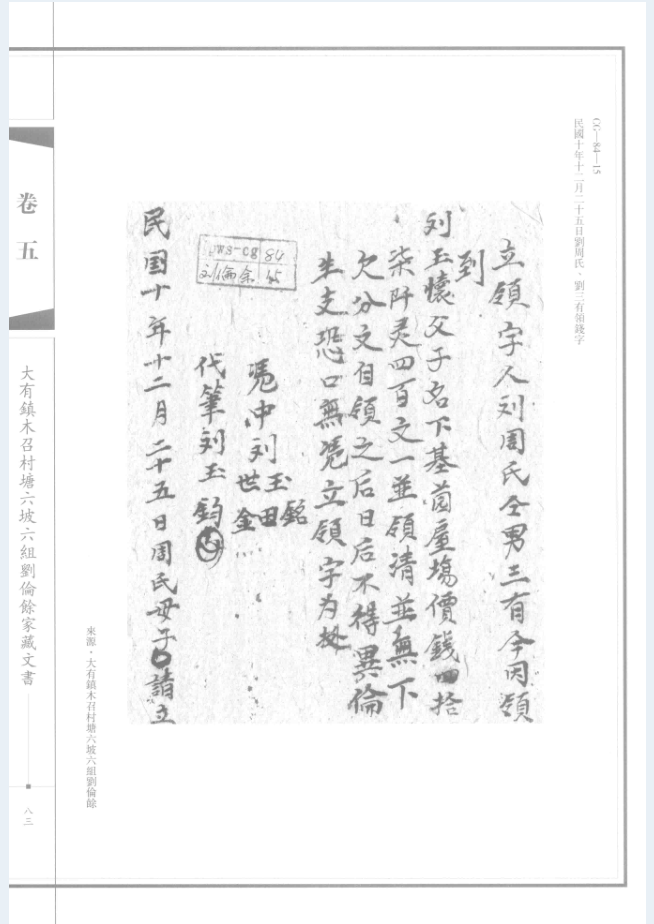 CC—84—15
民國十年十二月二十五日劉周氏、劉三有領錢字
立領字人刘周氏仝男三有今因領
到
刘玉懷父子名下基菌屋塲價錢四拾
柒阡灵四百文一並領清並無下
欠分文自領之后日后不得異倫
生支恐口無凴立領字为拠
凴中刘
玉田銘
世金
代筆刘玉鈞
JWS-CB 84
刘倫余 15
民国十年十二月二十五日周氏母子請立
來源：大有鎮木召村塘六坡六組劉倫餘
卷五
大有鎮木召村塘六坡六組劉倫餘家藏文書
八三